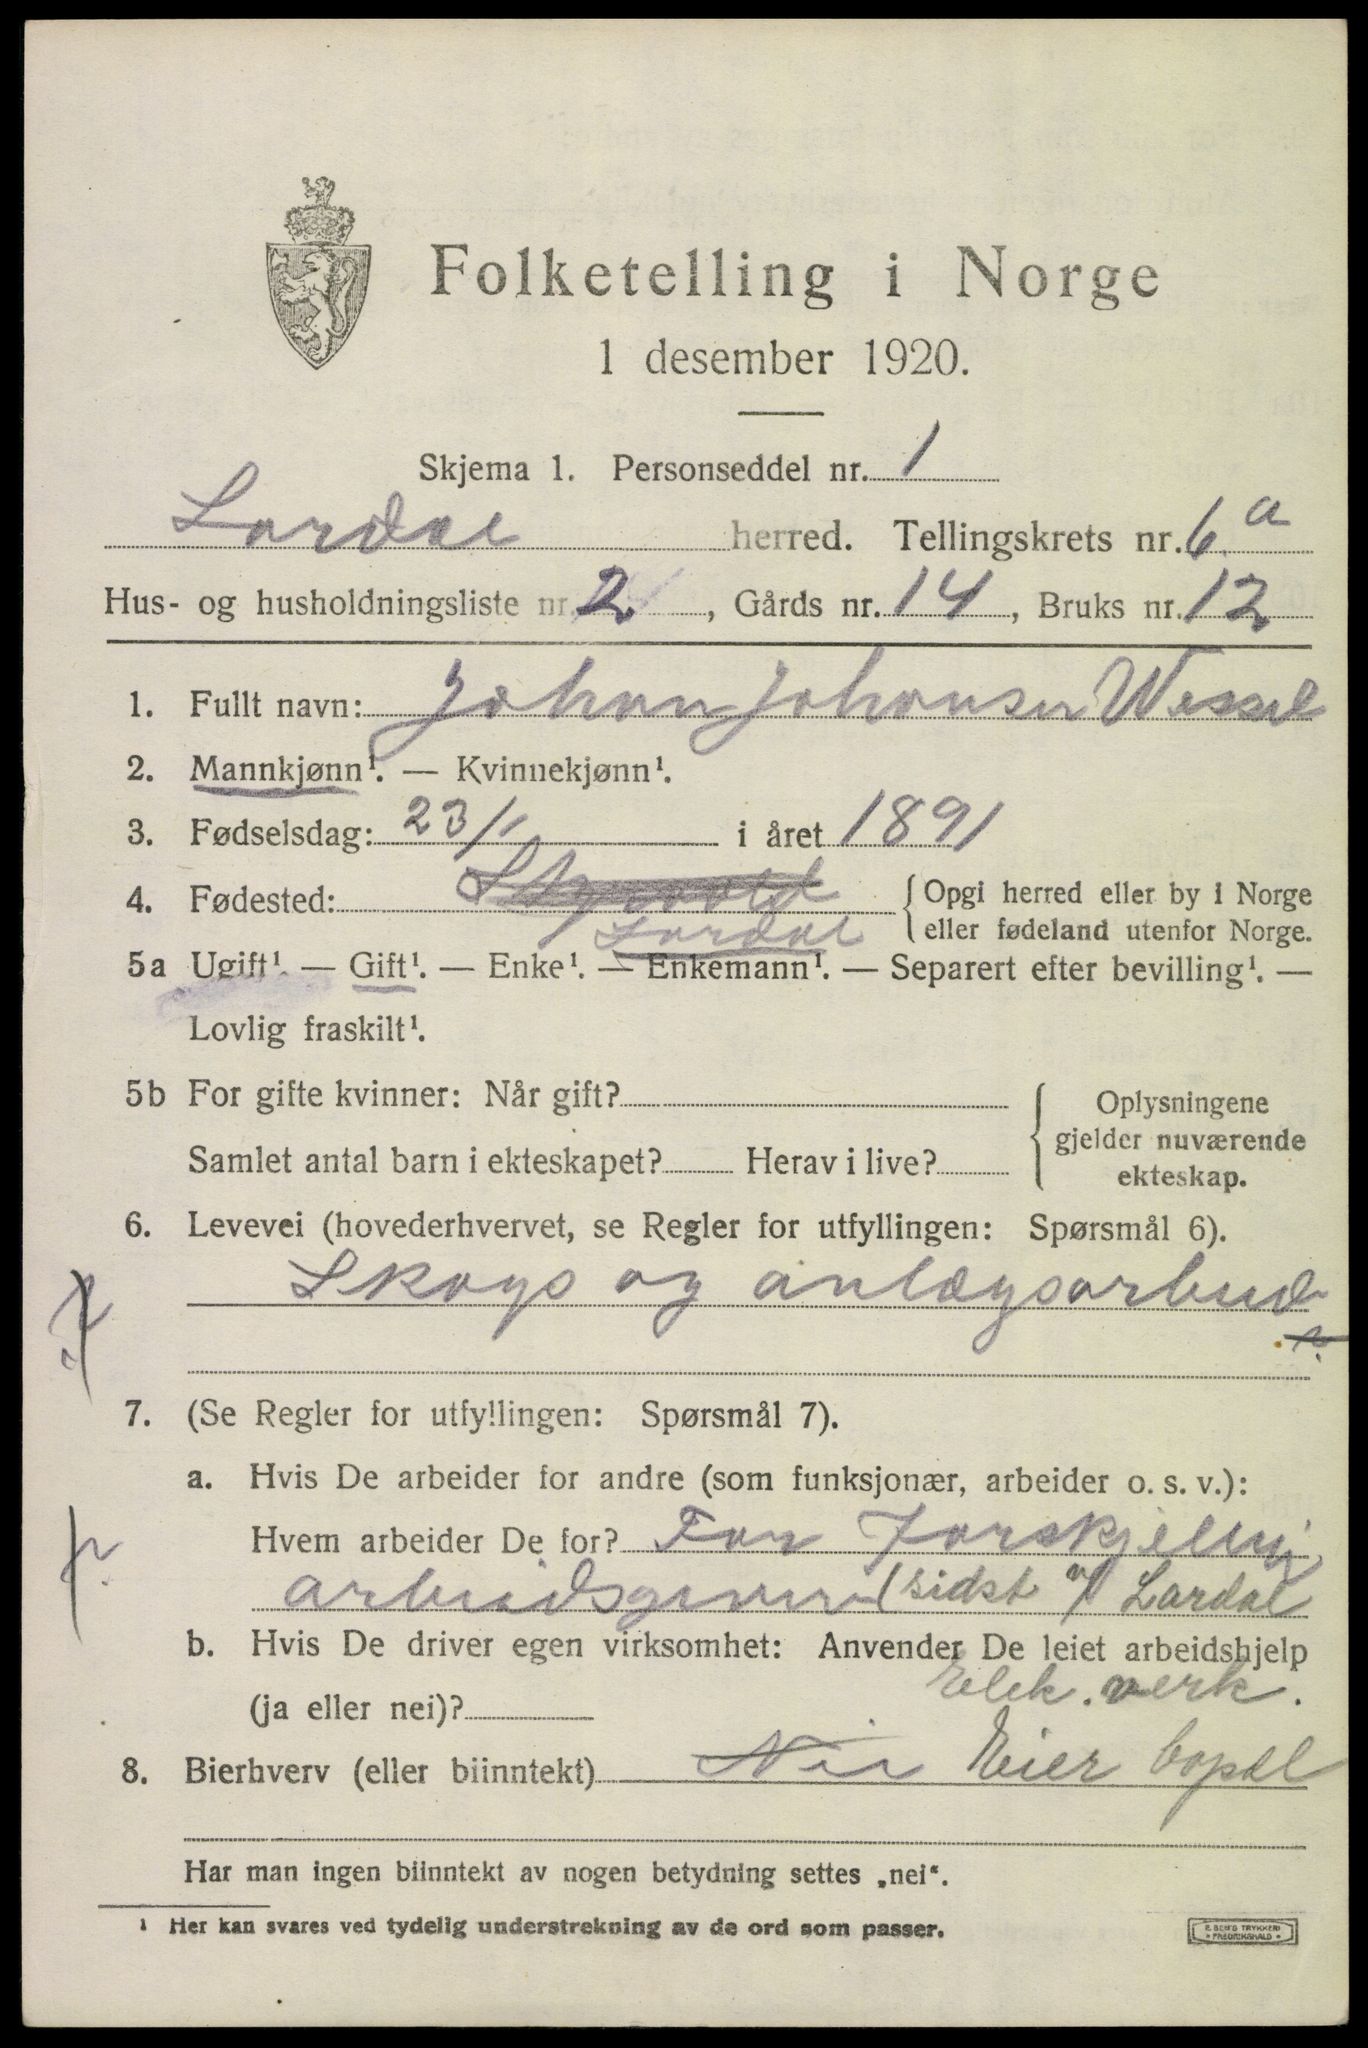 Folketelling i Norge
1 desember 1920.
Skjema 1. Personseddel nr. 1
Lardal herred. Tellingskrets nr. 6 a
Hus- og husholdningsliste nr. 2, Gårds nr. 14, Bruks nr. 12
1. Fullt navn: Johan Johansen Wessel
2. Mannkjønn¹. — Kvinnekjønn¹.
3. Fødselsdag: 23/1 i året 1891
4. Fødested: { Opgi herred eller by i Norge
Lardal eller fødeland utenfor Norge.
5a Ugift¹. — Gift¹. — Enke¹. — Enkemann¹. — Separert efter bevilling¹. —
Lovlig fraskilt¹.
5b For gifte kvinner: Når gift? { Oplysningene
gjelder nuværende
Samlet antal barn i ekteskapet? Herav i live?
ekteskap.
6. Levevei (hovederhvervet, se Regler for utfyllingen: Spørsmål 6).
Skogs og anlægsarbeid
7. (Se Regler for utfyllingen: Spørsmål 7).
a. Hvis De arbeider for andre (som funksjonær, arbeider o. s. v.):
Hvem arbeider De for? For Forskjellig
arbeidsgivere (sidst v/ Lardal
b. Hvis De driver egen virksomhet: Anvender De leiet arbeidshjelp
Elek. verk.
(ja eller nei)?
8. Bierhverv (eller biinntekt) Nei Eier
Har man ingen biinntekt av nogen betydning settes „nei“.
¹ Her kan svares ved tydelig understrekning av de ord som passer.
E. SEM'S TRYKKERI
FREDRIKSHALD